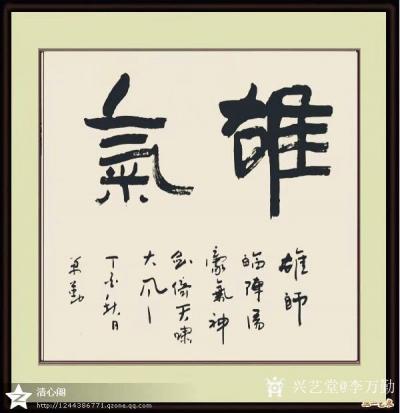 雄氣
雄師
臨陣湯
豪氣神
劍倚天嘯
大风
丁亥秋日
萬勤
清心阁
http://1244386771.qzone.qq.com
兴艺堂@李万勤